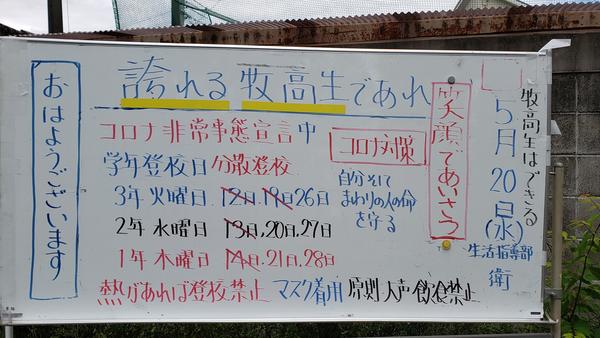 牧高生はできる
5月20日(水)
生活指導部
衛
笑顔であいさつ
誇れる牧高生であれ
コロナ非常事態宣言中
コロナ対策
学年登校日分散登校
3年火曜日 12日,19日26日
2年水曜日 13日,20日,27日
1年木曜日 14日,21日,28日
自分そして
まわりの人の命
を守る
熱があれば登校禁止 マスク着用 原則大声飲食禁止
おはようございます